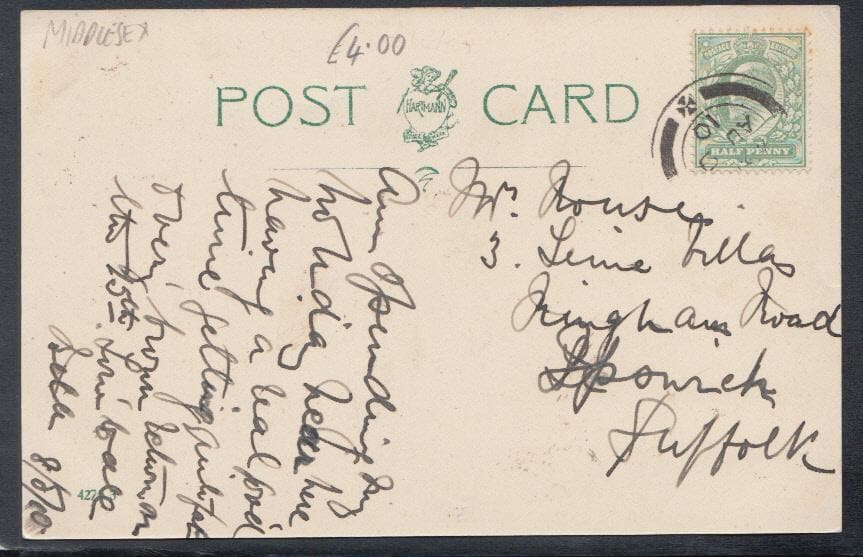 MIDDLESEX
£4.00
POST CARD
HARTMANN
HALF PENNY
AU
10
Mr. Rouse.
3. Lime Villas
Kingham Road
Ipswich
Suffolk
Am Spending my
holiday here
having a real good
time getting quite fat
& very brown return on
the 25th love to all
8/8/10